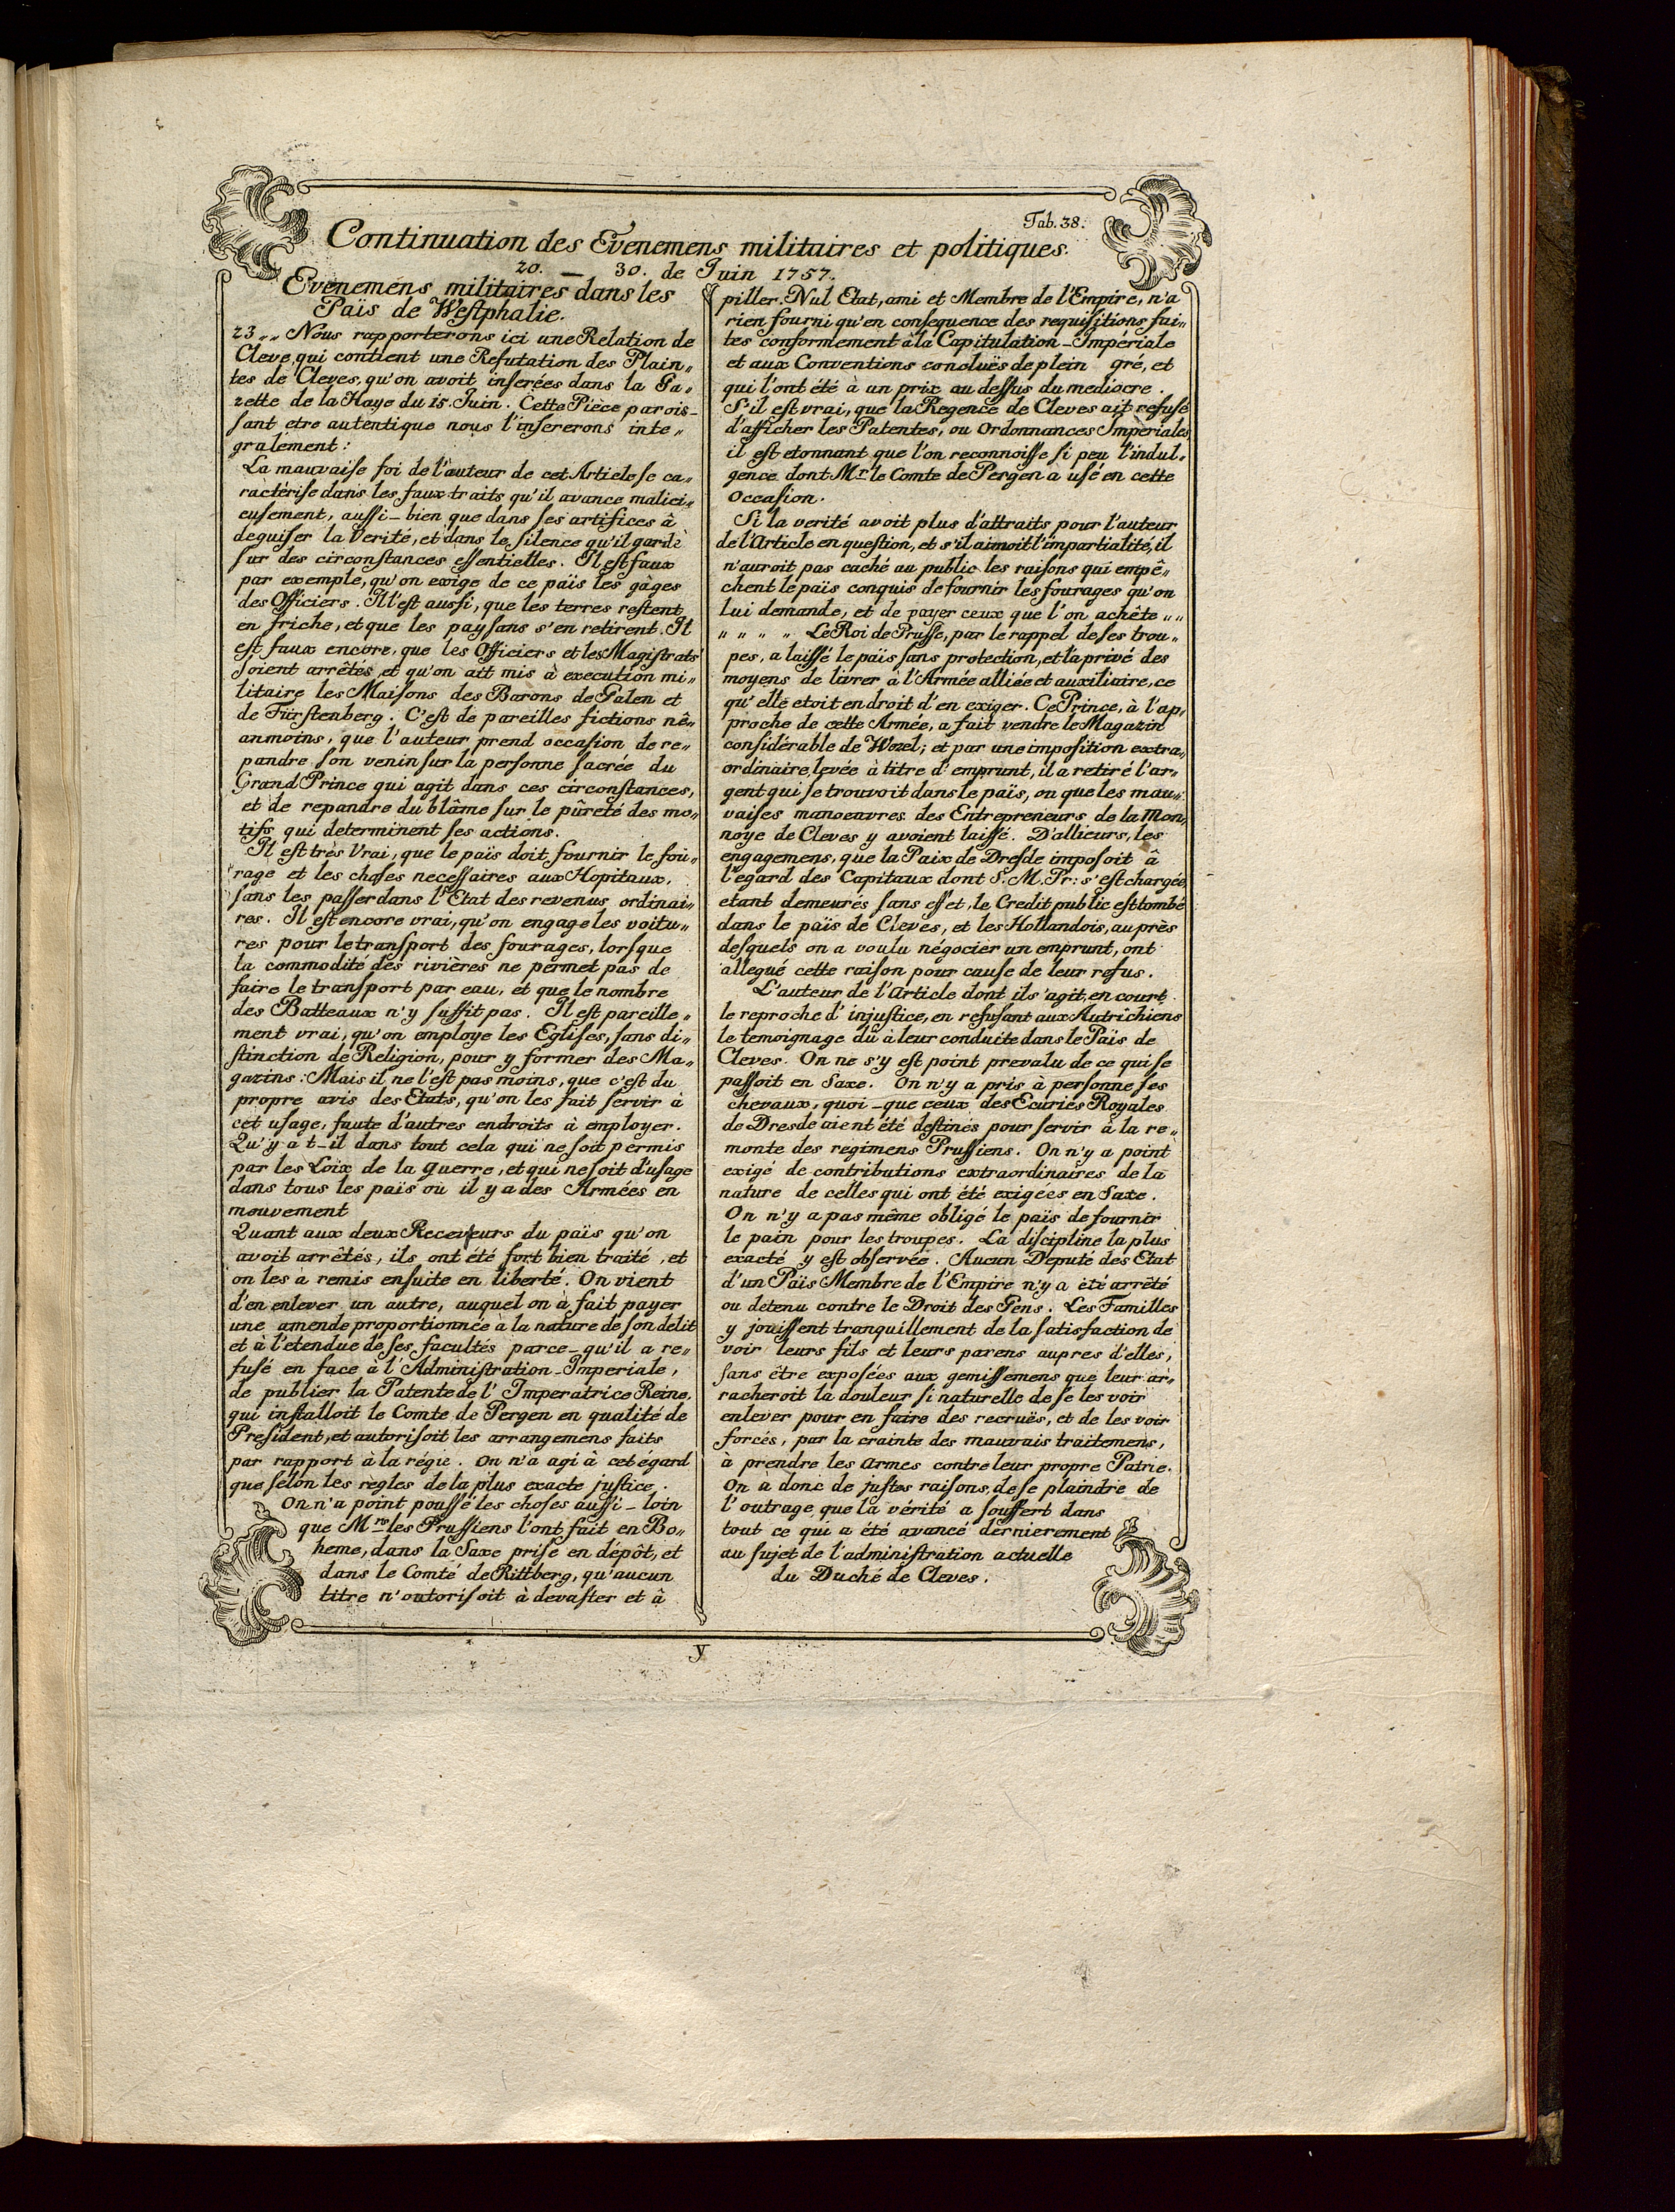 Tab. 38.
Continuation des Evenemens militaires et politiques.
20. — 30. de Juin 1757.
Evenemens militaires dans les
Païs de Weſtphalie.
23 „„ Nous rapporterons ici une Relation de
Cleve, qui contient une Refutation des Plain„
tes de Cleves, qu'on avoit inſerées dans la Ga„
zette de la Haye du 15. Juin. Cette Pièce parois-
ſant etre autentique nous l'inſererons inte„
gralement:
La mauvaiſe foi de l'auteur de cet Article ſe ca„
ractèriſe dans les faux traits qu'il avance malici„
euſement, auſſi-bien que dans ſes artifices â
deguiſer la Verité, et dans le ſilence qu'il gardè
ſur des circonſtances eſſentielles. Il eſt faux
par exemple, qu'on exige de ce païs les gàges
des Officiers. Il l'eſt auſſi, que les terres reſtent
en friche, et que les payſans s'en retirent. Il
eſt faux encore, que les Officiers et les Magiſtrats
ſoient arrêtés, et qu'on ait mis à execution mi„
litaire les Maiſons des Barons de Galen et
de Fürstenberg. C'eſt de pareilles fictions nê„
anmoins, que l'auteur prend occaſion de re„
pandre ſon venin ſur la perſonne ſacrée du
Grand Prince qui agit dans ces circonſtances,
et de repandre du blâme ſur le pûreté des mo„
tifs qui determinent ſes actions.
Il est très Vrai, que le païs doit fournir le foü„
rage et les choſes neceſſaires aux Hopitaux,
ſans les paſſer dans l'Etat des revenus ordinai„
res. Il eſt encore vrai, qu'on engage les voitu„
res pour le tranſport des fourages, lorſque
la commodité des rivières ne permet pas de
faire le tranſport par eau, et que le nombre
des Batteaux n'y ſuffit pas. Il eſt pareille„
ment vrai, qu'on employe les Egliſes, ſans di„
ſtinction de Religion, pour y former des Ma„
gazins: Mais il ne l'eſt pas moins, que c'eſt du
propre avis des Etats, qu'on les fait ſervir à
cet uſage, faute d'autres endroits à employer.
Qu'y a t-il dans tout cela qui ne ſoit permis
par les Loix de la guerre, et qui ne ſoit d'uſage
dans tous les païs où il y a des Armées en
mouvement
Quant aux deux Receveurs du païs qu'on
avoit arrêtés, ils ont été fort bien traité, et
on les a remis enſuite en liberté. On vient
d'en enlever un autre, auquel on à fait payer
une amende proportionnée à la nature de ſon delit
et à l'etendue de ſes facultés parce-qu'il a re„
fusé en face à l'Adminiſtration-Imperiale,
de publier la Patente de l'Imperatrice Reine,
qui inſtalloit le Comte de Pergen en qualité de
Preſident, et autoriſoit les arrangemens faits
par rapport à la régie. On n'a agi à cet égard
que ſelon les règles de la plus exacte juſtice.
On n'a point pouſſé les choſes auſſi-loin
que Mrs les Pruſſiens l'ont fait en Bo„
heme, dans la Saxe priſe en dépôt, et
dans le Comté de Rittberg, qu'aucun
titre n'autoriſoit à devaſter et â
piller. Nul Etat, ami et Membre de l'Empire, n'a
rien fourni qu'en conſequence des requiſitions fai„
tes conformement à la Capitulation-Impériale
et aux Conventions concluës de plein gré, et
qui l'ont été à un prix au deſſus du mediocre.
S'il eſt vrai, que la Regence de Cleves ait refusé
d'afficher les Patentes, ou Ordonnances Impèriales,
il eſt etonnant que l'on reconnoiſſe ſi peu l'indul„
gence dont Mr. le Comte de Pergen a uſé en cette
occaſion.
Si la verité avoit plus d'attraits pour l'auteur
de l'Article en queſtion, et s'il aimoit l'impartialité, il
n'auroit pas caché au public les raiſons qui empê„
chent le païs conquis de fournir les fourages qu'on
lui demande, et de payer ceux que l'on achête „„
„ „ „ „ Le Roi de Pruſſe, par le rappel de ſes trou„
pes, a laiſſé le païs ſans protection, et l'a privé des
moyens de livrer à l'Armée alliée et auxiliaire, ce
qu'elle etoit en droit d'en exiger. Ce Prince, à l'ap„
proche de cette Armée, a fait vendre le Magazin
conſidérable de Wezel; et par une impoſition extra„
ordinaire, levée à titre d'emprunt, il a retiré l'ar„
gent qui ſe trouvoit dans le païs, ou que les mau„
vaiſes manoeuvres des Entrepreneurs de la Mon„
noye de Cleves y avoient laiſſé. D'allieurs, les
engagemens, que la Paix de Dreſde impoſoit â
l'egard des Capitaux dont S. M. Pr: s'eſt chargée,
etant demeurés ſans effet, le Credit public eſt tombé
dans le païs de Cleves, et les Hollandois, au près
deſquels on a voulu négocier un emprunt, ont
allegué cette raiſon pour cauſe de leur refus.
L'auteur de l'Article dont il s'agit, en court
le reproche d'injuſtice, en refuſant aux Autrichiens
le temoignage dû à leur conduite dans le Païs de
Cleves. On ne s'y est point prevalu de ce qui ſe
paſſoit en Saxe. On n'y a pris à perſonne ſes
chevaux, quoi-que ceux des Ecuries Royales
de Dresde aient été deſtinés pour ſervir à la re„
monte des regimens Pruſſiens. On n'y a point
exigé de contributions extraordinaires de la
nature de celles qui ont été exigées en Saxe.
On n'y a pas même obligé le païs de fournir
le pain pour les troupes. La diſcipline la plus
exacté y eſt obſervée. Aucun Deputé des Etat
d'un Païs Membre de l'Empire n'y a été arrêté
ou detenu contre le Droit des Gens. Les Familles
y jouiſſent tranquillement de la ſatisfaction de
voir leurs fils et leurs parens aupres d'elles,
ſans être expoſées aux gemiſſemens que leur ar„
racheroit la douleur ſi naturelle de ſe les voir
enlever pour en faire des recruës, et de les voir
forcés, par la crainte des mauvais traitemens,
à prendre les Armes contre leur propre Patrie.
On à donc de juſtes raiſons, de ſe plaindre de
l'outrage que la vérité a ſouffert dans
tout ce qui a été avancé dernierement
au ſujet de l'adminiſtration actuelle
du Duché de Cleves.
y